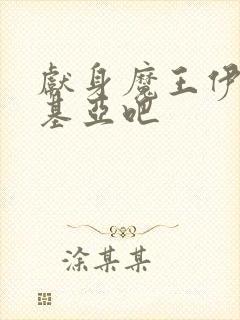 獻身魔王伊
基亞吧
涂某某